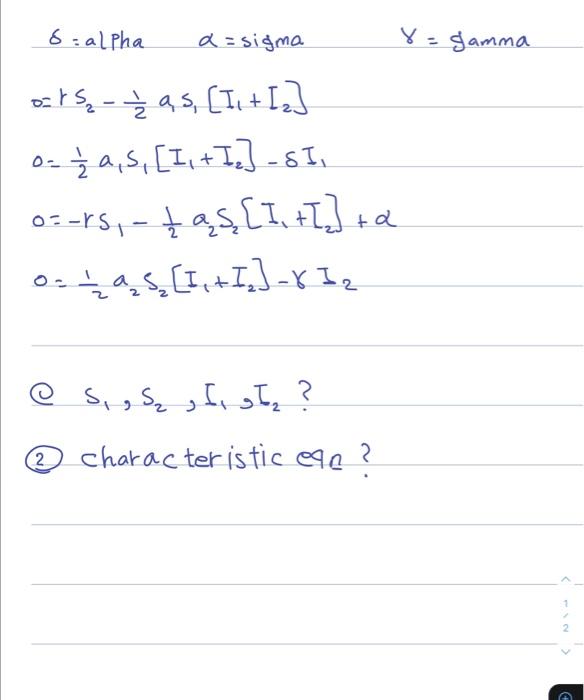 δ = alpha α = sigma γ = gamma
0 = r S₂ - 1/2 a₁ S₁ [I₁ + I₂]
0 = 1/2 a₁ S₁ [I₁ + I₂] - δ I₁
0 = -r S₁ - 1/2 a₂ S₂ [I₁ + I₂] + α
0 = 1/2 a₂ S₂ [I₁ + I₂] - γ I₂
@ S₁ , S₂ , I₁ , I₂ ?
② characteristic eqn ?
1
/
2